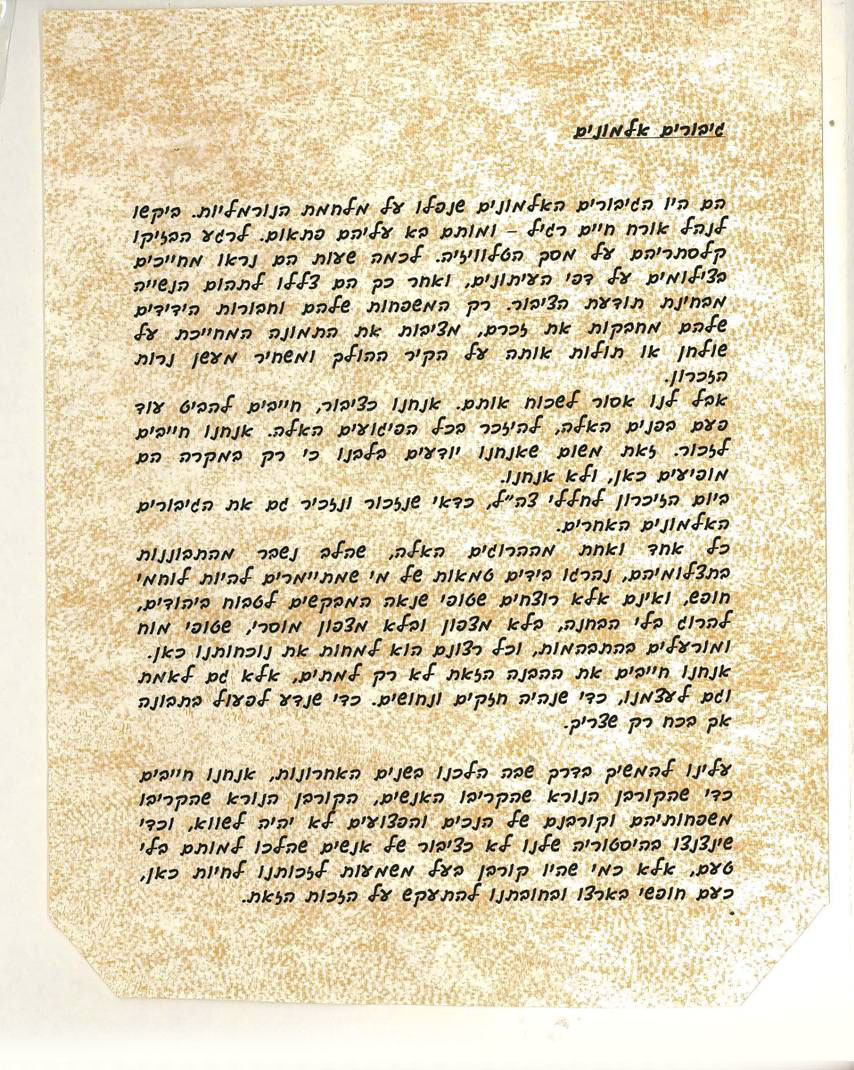 גיבורים אלמונים
הם היו הגיבורים האלמונים שנפלו על מלחמת הנורמליות. ביקשו
לנהל אורח חיים רגיל – ומותם בא עליהם פתאום. לרגע הבזיקו
קלסתריהם על מסך הטלוויזיה. לכמה שעות הם נראו מחייכים
בצילומים על דפי העיתונים, ואחר כך הם צללו לתהום הנשייה
מבחינת תודעת הציבור. רק המשפחות שלהם וחבורות הידידים
שלהם מחבקות את זכרם, מציבות את התמונה המחייכת על
שולחן או תולות אותה על הקיר ההולך ומשחיר מעשן נרות
הזכרון.
אבל לנו אסור לשכוח אותם. אנחנו כציבור, חייבים להביט עוד
פעם בפנים האלה, להיזכר בכל הפיגועים האלה. אנחנו חייבים
לזכור. זאת משום שאנחנו יודעים בלבנו כי רק במקרה הם
מופיעים כאן, ולא אנחנו.
ביום הזיכרון לחללי צה"ל, כדאי שנזכור ונזכיר גם את הגיבורים
האלמונים האחרים.
כל אחד ואחת מההרוגים האלה, שהלב נשבר מהתבוננות
בתצלומיהם, נהרגו בידים טמאות של מי שמתיימרים להיות לוחמי
חופש, ואינם אלא רוצחים שטופי שנאה המבקשים לטבוח ביהודים,
להרוג בלי הבחנה, בלא מצפון ובלא מצפון מוסרי, שטופי מוח
ומורעלים בהתבהמות, וכל רצונם הוא למחות את נוכחותנו כאן.
אנחנו חייבים את ההבנה הזאת לא רק למתים, אלא גם לאמת
וגם לעצמנו, כדי שנהיה חזקים ונחושים. כדי שנדע לפעול בתבונה
אך בכח רק שצריך.
עלינו להמשיך בדרך שבה הלכנו בשנים האחרונות, אנחנו חייבים
כדי שהקורבן הנורא שהקריבו האנשים, הקורבן הנורא שהקריבו
משפחותיהם וקורבנם של הנכים והפצועים לא יהיה לשווא, וכדי
שינצנצו בהיסטוריה שלנו לא כציבור של אנשים שהלכו למותם בלי
טעם, אלא כמי שהיו קורבן בעל משמעות לזכותנו לחיות כאן,
כעם חופשי בארצו ובחובתנו להתעקש על הזכות הזאת.
.